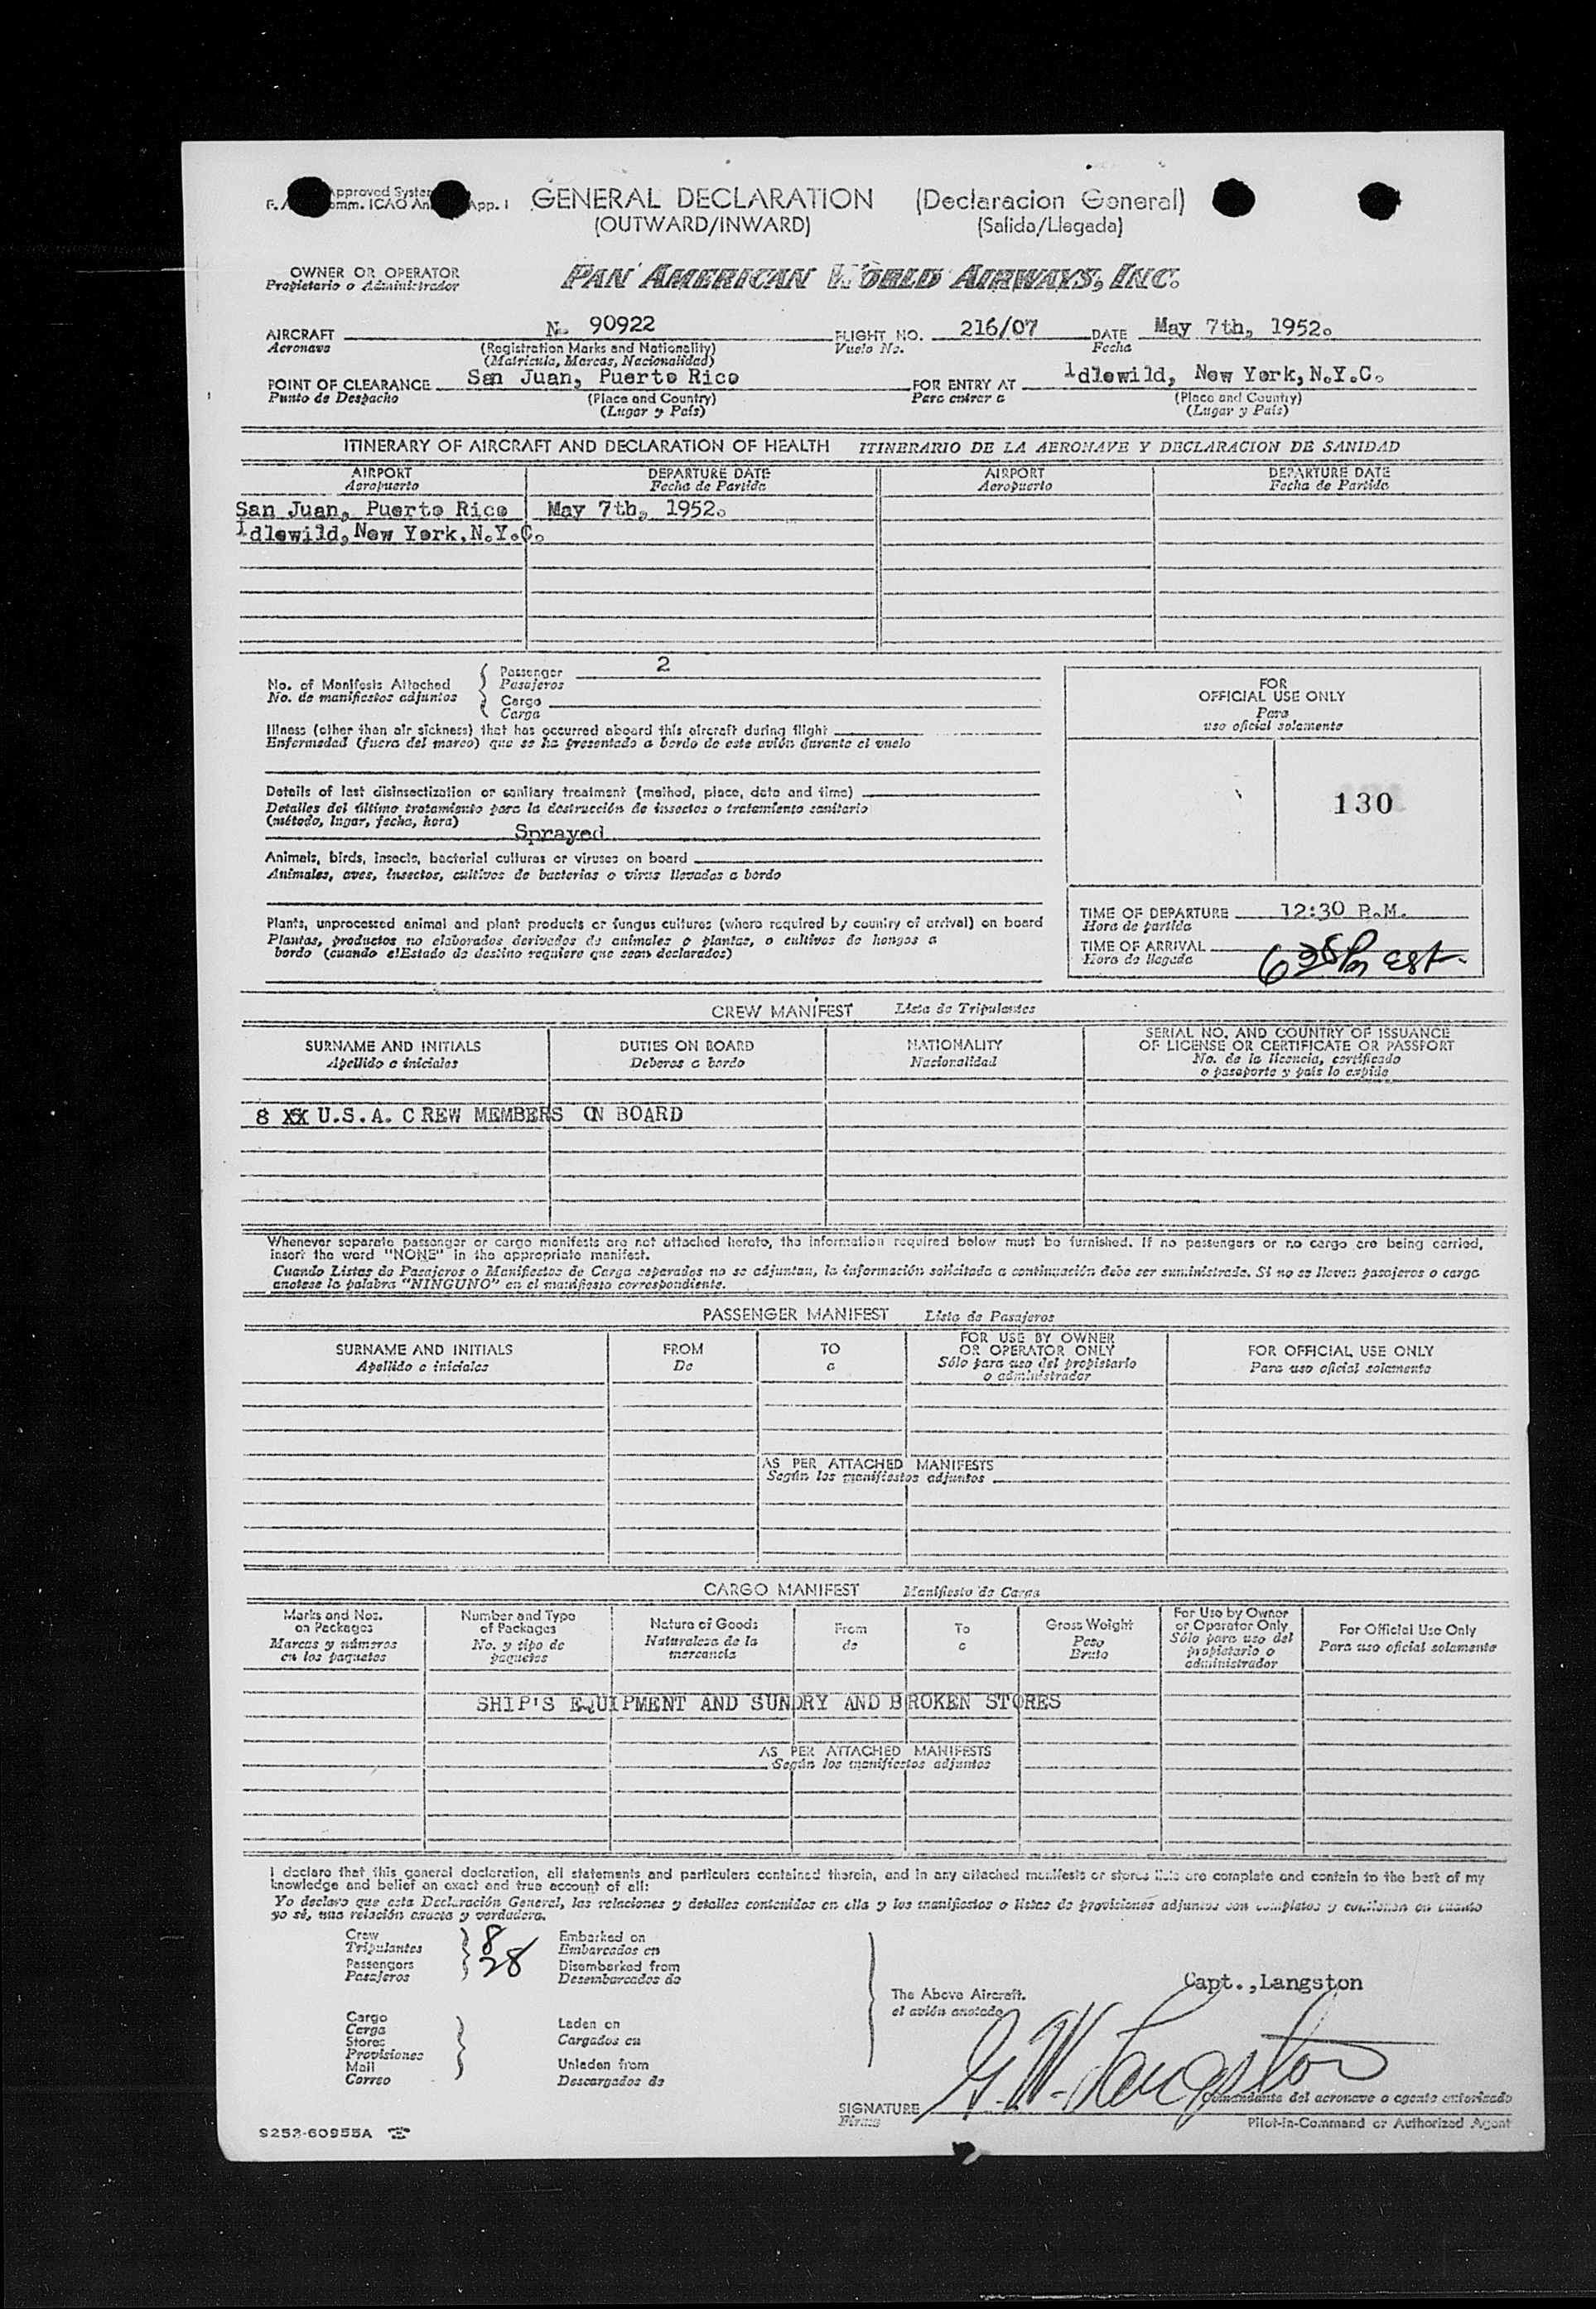 GENERAL DECLARATION (Declaracion General)
(OUTWARD/INWARD) (Salida/Llegada)
OWNER OR OPERATOR PAN AMERICAN WORLD AIRWAYS, INC.
Propietario o Administrador
AIRCRAFT N. 90922 FLIGHT NO. 216/07 DATE May 7th, 1952.
Aeronave (Registration Marks and Nationality) Vuelo No. Fecha
(Matricula, Marcas, Nacionalidad)
POINT OF CLEARANCE San Juan, Puerto Rico FOR ENTRY AT Idlewild, New York, N.Y.C.
Punto de Despacho (Place and Country) Para entrar a (Place and Country)
(Lugar y País) (Lugar y País)
ITINERARY OF AIRCRAFT AND DECLARATION OF HEALTH ITINERARIO DE LA AERONAVE Y DECLARACION DE SANIDAD
AIRPORT DEPARTURE DATE AIRPORT DEPARTURE DATE
Aeropuerto Fecha de Partida Aeropuerto Fecha de Partida
San Juan, Puerto Rico May 7th, 1952.
Idlewild, New York, N.Y.C.
No. of Manifests Attached
No. de manifiestos adjuntos
Passenger 2
Pasajeros
Cargo
Carga
Illness (other than air sickness) that has occurred aboard this aircraft during flight
Enfermedad (fuera del mareo) que se ha presentado a bordo de este avión durante el vuelo
Details of last disinsectization or sanitary treatment (method, place, date and time)
Detalles del último tratamiento para la destrucción de insectos o tratamiento sanitario
(método, lugar, fecha, hora)
Sprayed
Animals, birds, insects, bacterial cultures or viruses on board
Animales, aves, insectos, cultivos de bacterias o virus llevados a bordo
Plants, unprocessed animal and plant products or fungus cultures (where required by country of arrival) on board
Plantas, productos no elaborados derivados de animales o plantas, o cultivos de hongos a
bordo (cuando el Estado de destino requiere que sean declarados)
FOR
OFFICIAL USE ONLY
Para
uso oficial solamente
130
TIME OF DEPARTURE 12:30 P.M.
Hora de partida
TIME OF ARRIVAL
Hora de llegada
CREW MANIFEST Lista de Tripulantes
SURNAME AND INITIALS DUTIES ON BOARD NATIONALITY SERIAL NO. AND COUNTRY OF ISSUANCE
OF LICENSE OR CERTIFICATE OR PASSPORT
Apellido e iniciales Deberes a bordo Nacionalidad No. de la licencia, certificado
o pasaporte y país lo expide
8 XX U.S.A. CREW MEMBERS ON BOARD
Whenever separate passenger or cargo manifests are not attached hereto, the information required below must be furnished. If no passengers or no cargo are being carried,
insert the word "NONE" in the appropriate manifest.
Cuando Listas de Pasajeros o Manifiestos de Carga separados no se adjuntan, la información solicitada a continuación debe ser suministrada. Si no se lleven pasajeros o carga
anotese la palabra "NINGUNO" en el manifiesto correspondiente.
PASSENGER MANIFEST Lista de Pasajeros
SURNAME AND INITIALS FROM TO FOR USE BY OWNER
OR OPERATOR ONLY FOR OFFICIAL USE ONLY
Apellido e iniciales De a Sólo para uso del propietario
o administrador Para uso oficial solamente
AS PER ATTACHED MANIFESTS
Según los manifiestos adjuntos
CARGO MANIFEST Manifiesto de Carga
Marks and Nos.
on Packages
Marcas y números
en los paquetes
Number and Type
of Packages
No. y tipo de
paquetes
Nature of Goods
Naturaleza de la
mercancia
From
de
To
a
Gross Weight
Peso
Bruto
For Use by Owner
or Operator Only
Sólo para uso del
propietario o
administrador
For Official Use Only
Para uso oficial solamente
SHIP'S EQUIPMENT AND SUNDRY AND BROKEN STORES
AS PER ATTACHED MANIFESTS
Según los manifiestos adjuntos
I declare that this general declaration, all statements and particulars contained therein, and in any attached manifests or stores lists are complete and contain to the best of my
knowledge and belief an exact and true account of all:
Yo declaro que esta Declaración General, las relaciones y detalles contenidos en ella y los manifiestos o listas de provisiones adjuntos son completos y contienen en cuanto
yo sé, una relación exacta y verdadera.
Crew 8 Embarked on
Tripulantes Embarcados en
Passengers 28 Disembarked from
Pasajeros Desembarcados de
Cargo
Carga
Stores
Provisiones
Mail
Correo
Laden on
Cargados en
Unladen from
Descargados de
The Above Aircraft.
el avión anotado
Capt.,Langston
G.W. Langston
SIGNATURE
Firma
Comandante del aeronave o agente autorizado
Pilot-in-Command or Authorized Agent
S253-60955A